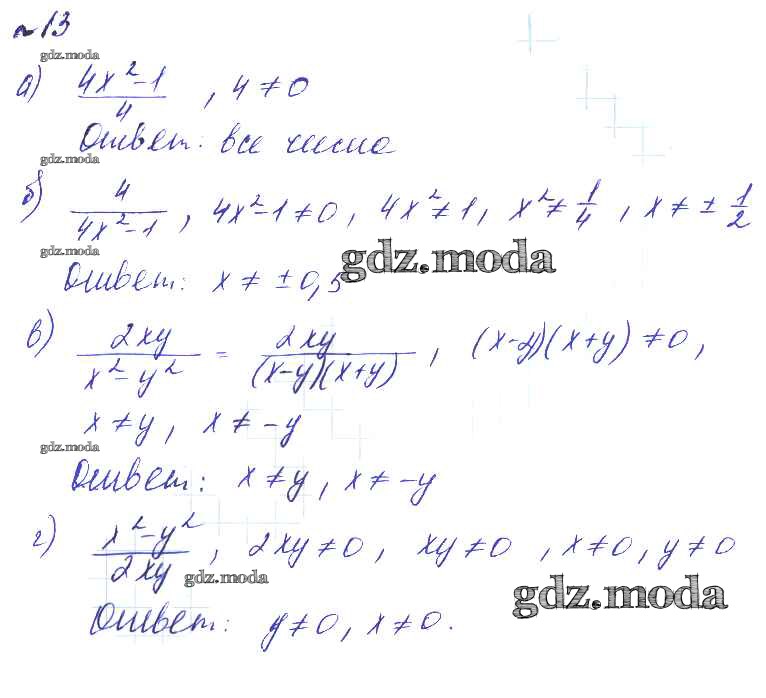 №13
gdz.moda
а) (4x²-1)/4 , 4 ≠ 0
Ответ: все числа
gdz.moda
б) 4/(4x²-1) , 4x²-1≠0 , 4x²≠1 , x²≠1/4 , x≠±1/2
gdz.moda
gdz.moda
Ответ: x ≠ ±0,5
в) 2xy/(x²-y²) = 2xy/((x-y)(x+y)) , (x-y)(x+y) ≠0 ,
x≠y , x≠-y
gdz.moda
Ответ: x≠y , x≠-y
г) (x²-y²)/2xy , 2xy≠0 , xy≠0 , x≠0 , y≠0
gdz.moda
gdz.moda
Ответ: y≠0 , x≠0.